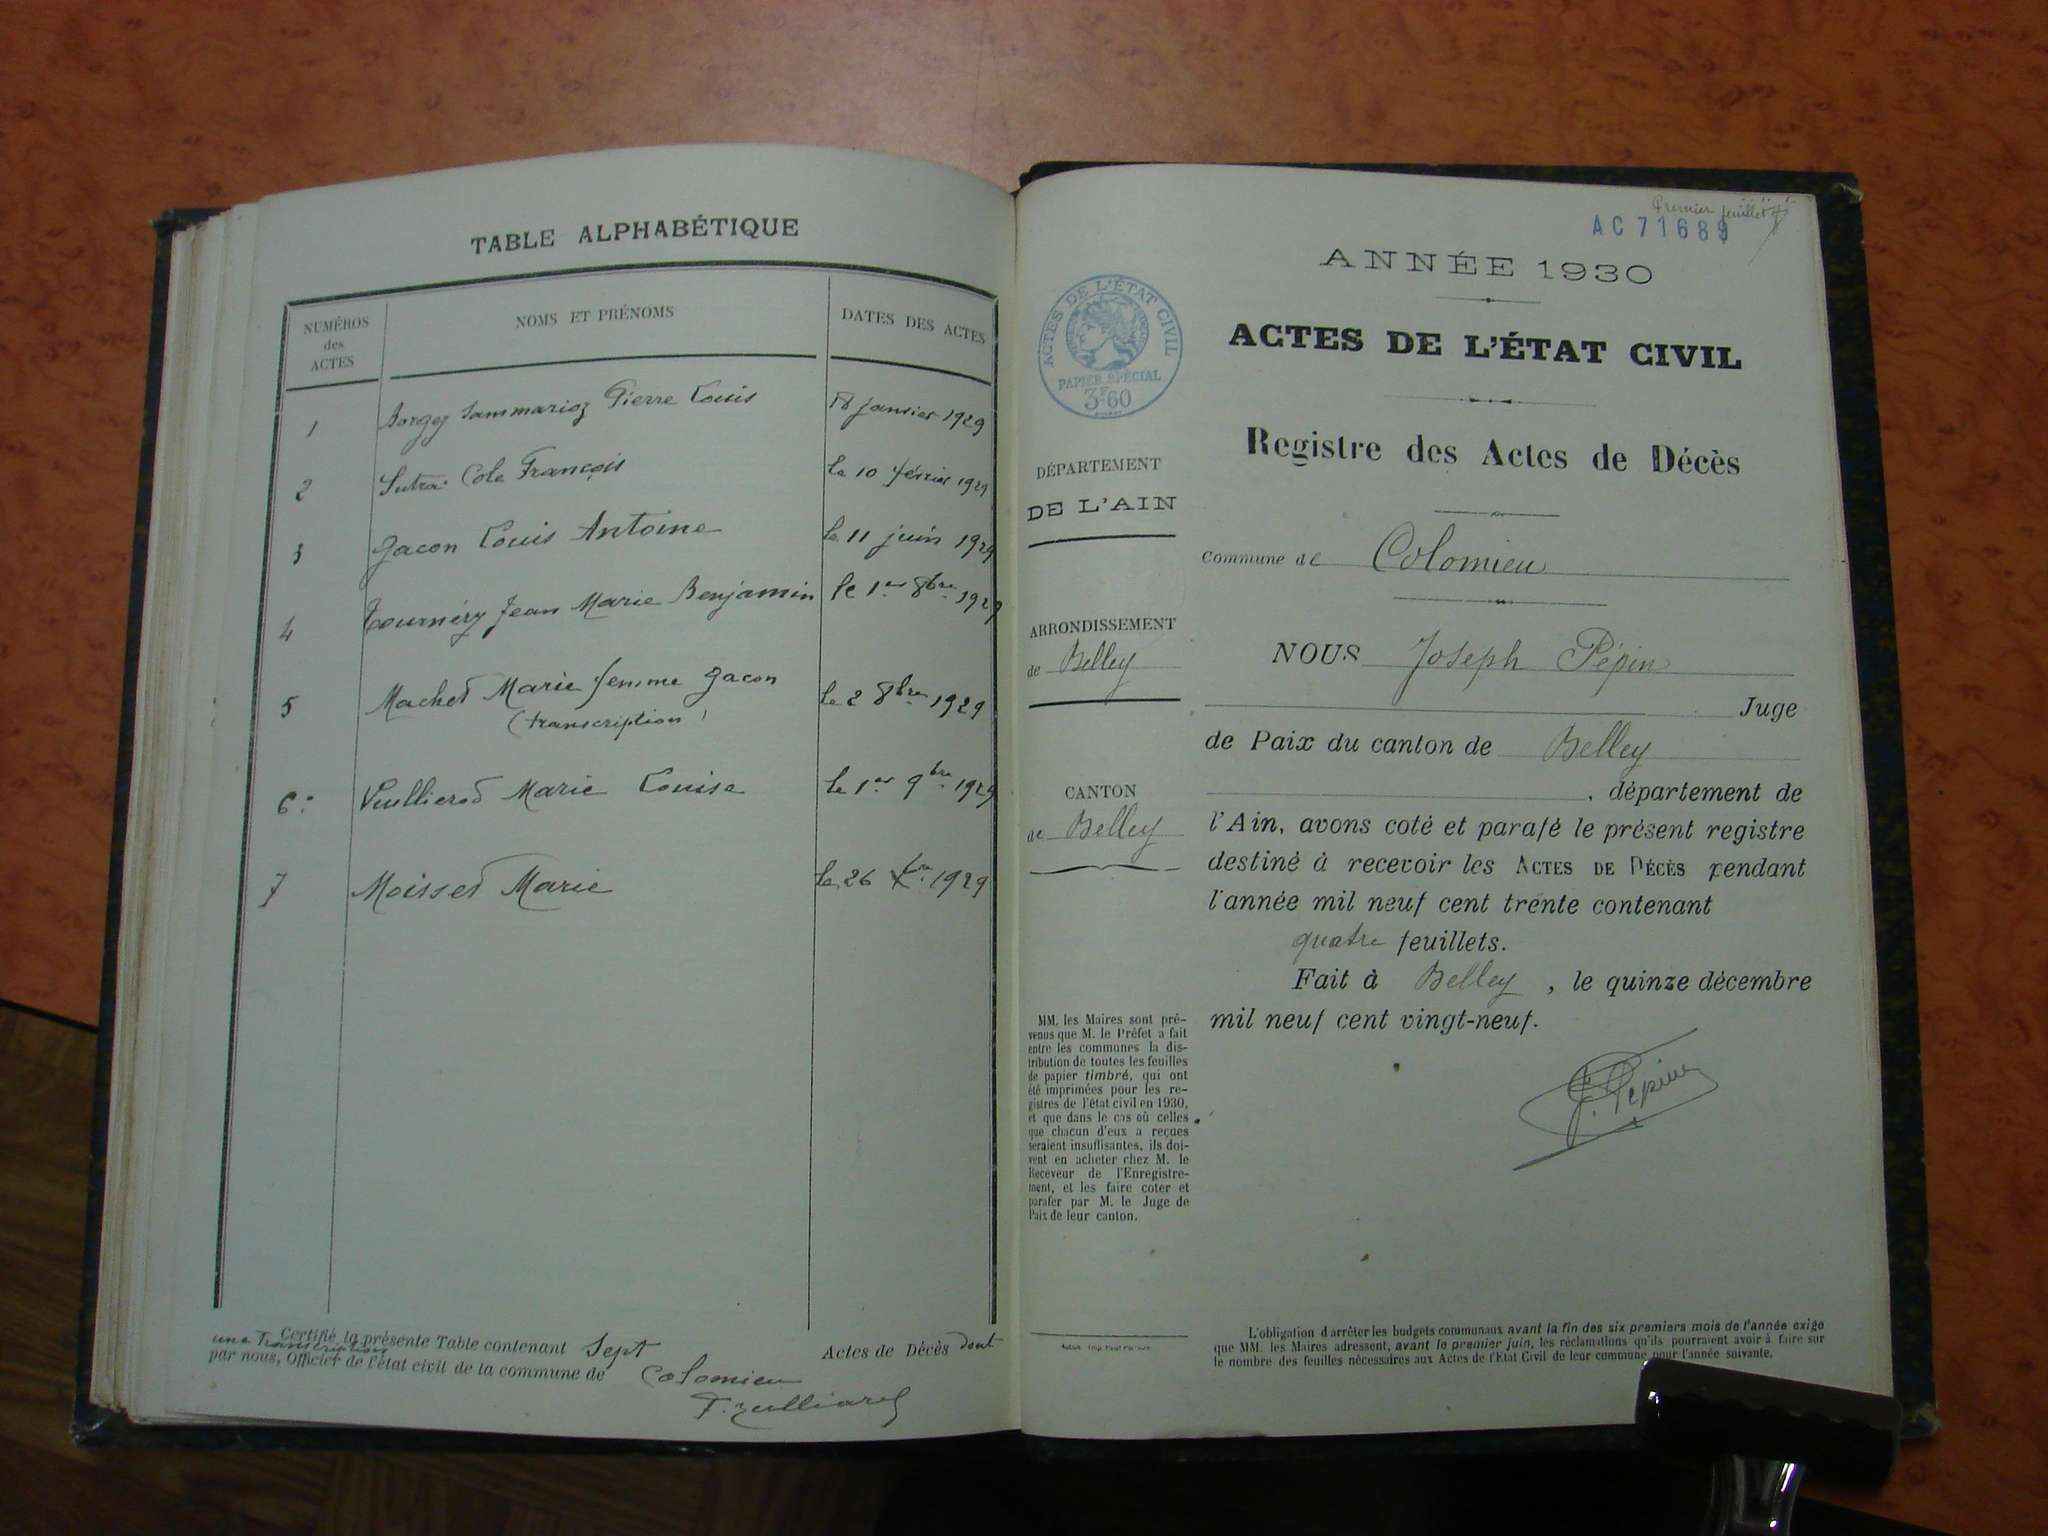 TABLE ALPHABÉTIQUE
NUMÉROS des ACTES
NOMS ET PRÉNOMS
DATES DES ACTES
1 Borgey Sammarioz Pierre Louis janvier 1929
2 Cole François le 10 février 1929
3 Gacon Louis Antoine le 11 juin 1929
4 Tournéry Jean Marie Benjamin le 1er 8bre 1929
5 Machet Marie femme Gacon le 2 8bre 1929
(transcription)
6 Vuillierod Marie Louise le 1er 9bre 1929
7 Moisset Marie le 26 Xbre 1929
Certifié la présente Table contenant Sept Actes de Décès dont
une transcription
par nous, Officier de l'état civil de la commune de Colomieu
Premier feuillet
AC 71689
ANNÉE 1930
ACTES DE L'ÉTAT CIVIL
PAPIER SPÉCIAL
3F60
ACTES DE L'ÉTAT CIVIL
Registre des Actes de Décès
DÉPARTEMENT
DE L'AIN
Commune de Colomieu
ARRONDISSEMENT
de Belley
NOUS Joseph Pépin
Juge
de Paix du canton de Belley
CANTON
de Belley
, département de
l'Ain, avons coté et parafé le présent registre
destiné à recevoir les ACTES DE DÉCÈS pendant
l'année mil neuf cent trente contenant
quatre feuillets.
Fait à Belley, le quinze décembre
mil neuf cent vingt-neuf.
J. Pépin
MM. les Maires sont pré-
venus que M. le Préfet a fait
entre les communes la dis-
tribution de toutes les feuilles
de papier timbré, qui ont
été imprimées pour les re-
gistres de l'état civil en 1930,
et que dans le cas où celles
que chacun d'eux a reçues
seraient insuffisantes, ils doi-
vent en acheter chez M. le
Receveur de l'Enregistre-
ment, et les faire coter et
parafer par M. le Juge de
Paix de leur canton.
L'obligation d'arrêter les budgets communaux avant la fin des six premiers mois de l'année exige
que MM. les Maires adressent, avant le premier juin, les réclamations qu'ils pourraient avoir à faire sur
le nombre des feuilles nécessaires aux Actes de l'Etat Civil de leur commune pour l'année suivante.